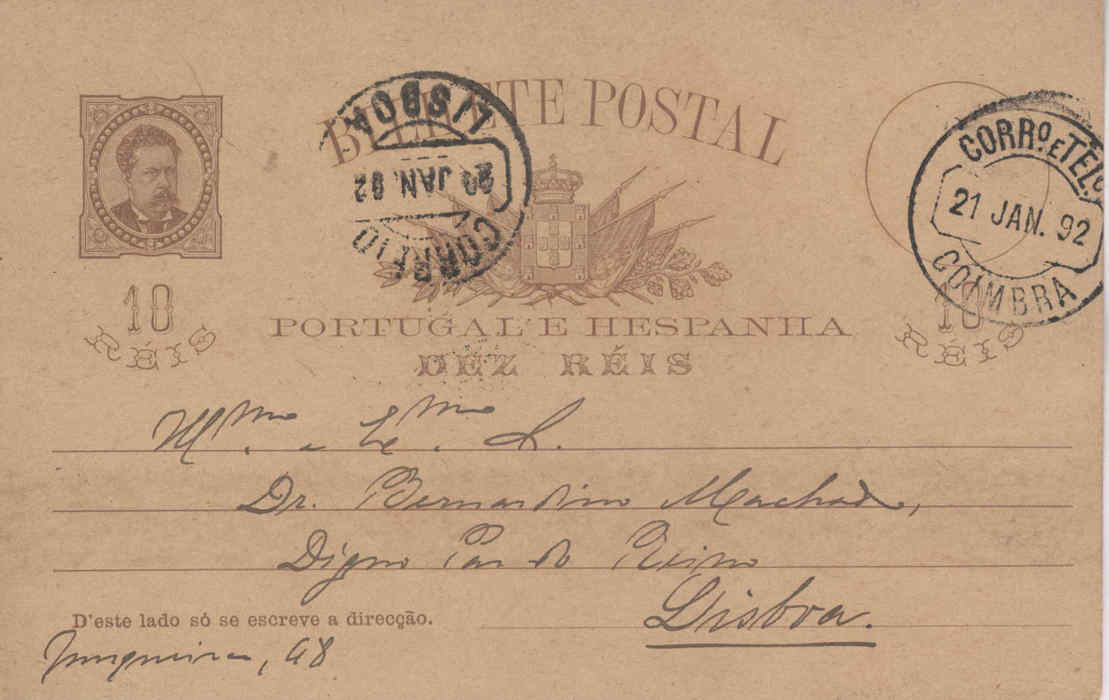 BILHETE POSTAL
CORREIO
JAN. 92
LISBOA
CORR.º E TEL.º
21 JAN. 92
COIMBRA
10
RÉIS
PORTUGAL E HESPANHA
DEZ RÉIS
10
RÉIS
Ill.mo e Ex.mo S.
Dr. Bernardino Machado,
Digno Par do Reino
Lisboa.
D'este lado só se escreve a direcção.
Junqueira, 68